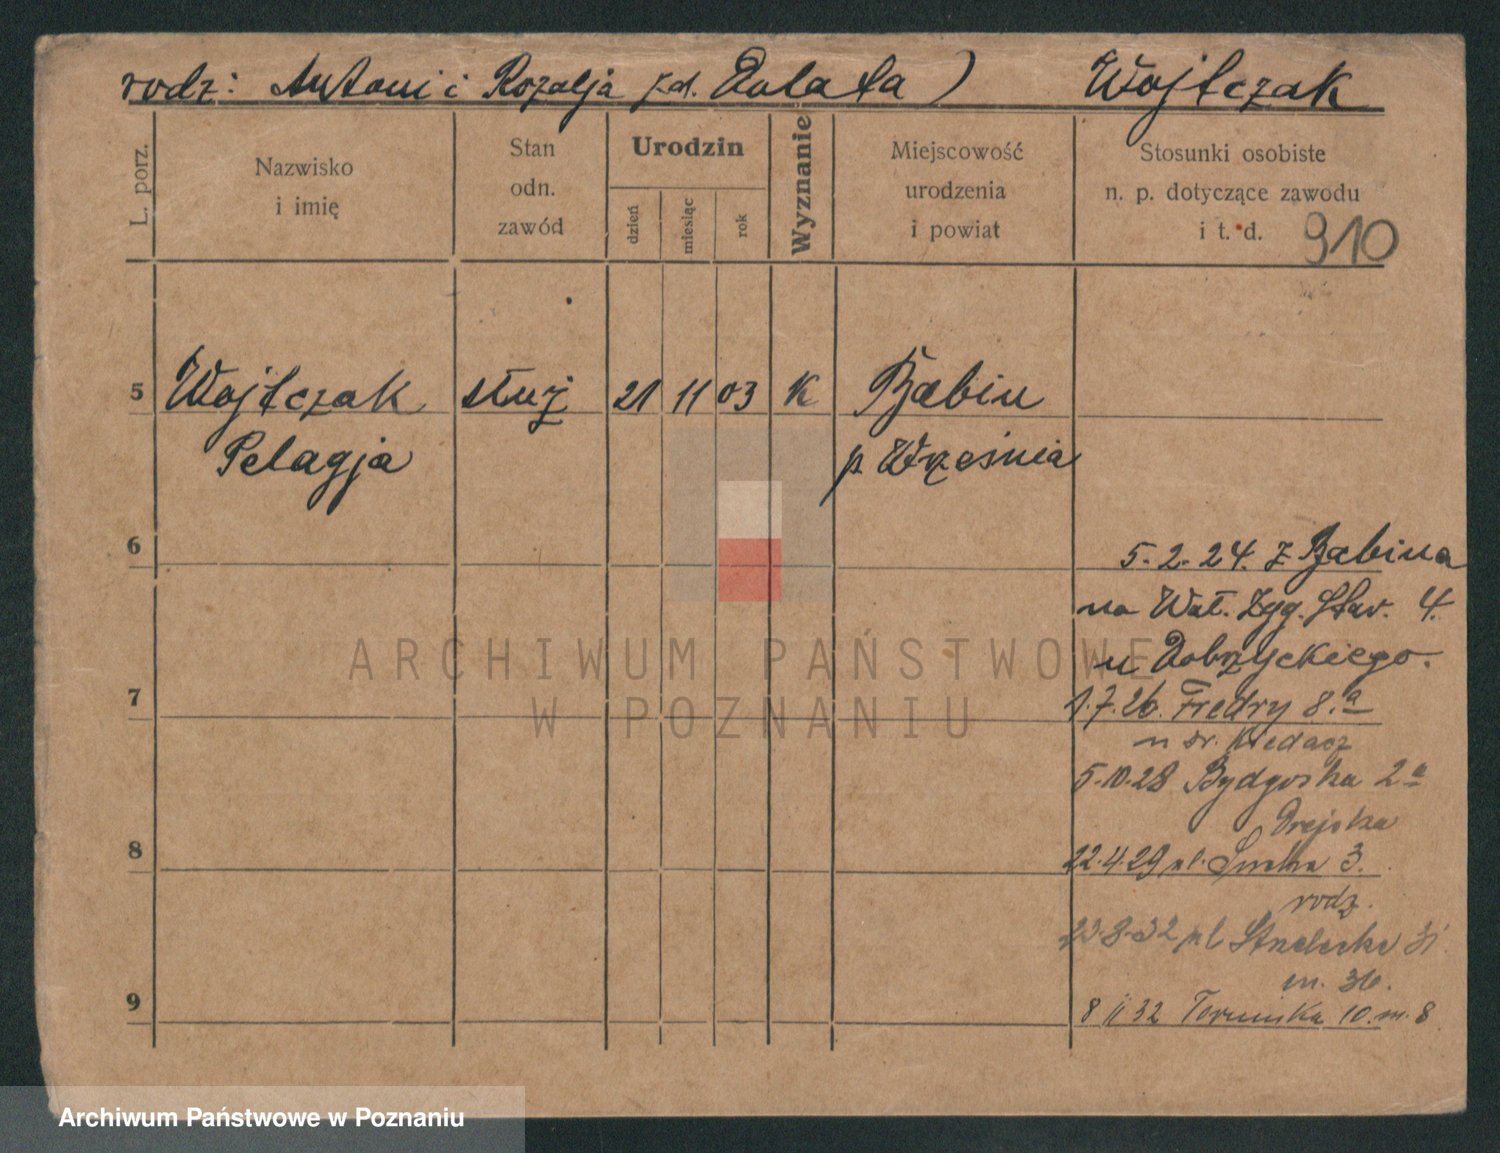 rodz: Antoni i Rozalja z d. Dolata) Wojtczak
L. porz.
Nazwisko
i imię
Stan
odn.
zawód
Urodzin
dzień
miesiąc
rok
Wyznanie
Miejscowość
urodzenia
i powiat
Stosunki osobiste
n. p. dotyczące zawodu
i t. d. 910
5 Wojtczak służ 21 11 03 K Babin
Pelagja p. Września
6
5.2.24. z Babina
na Wał. Zyg. Star. 4.
u Dobrzyckiego.
7
1.7.26. Fredry 8.a
u dr. Kledacz
5.10.28 Bydgoska 2a
8
22.4.29 ul. 3.
rodz.
23.8.32 pl
m. 36.
9
8 II 32 Toruńska 10. m. 8
ARCHIWUM PAŃSTWOWE
W POZNANIU
Archiwum Państwowe w Poznaniu